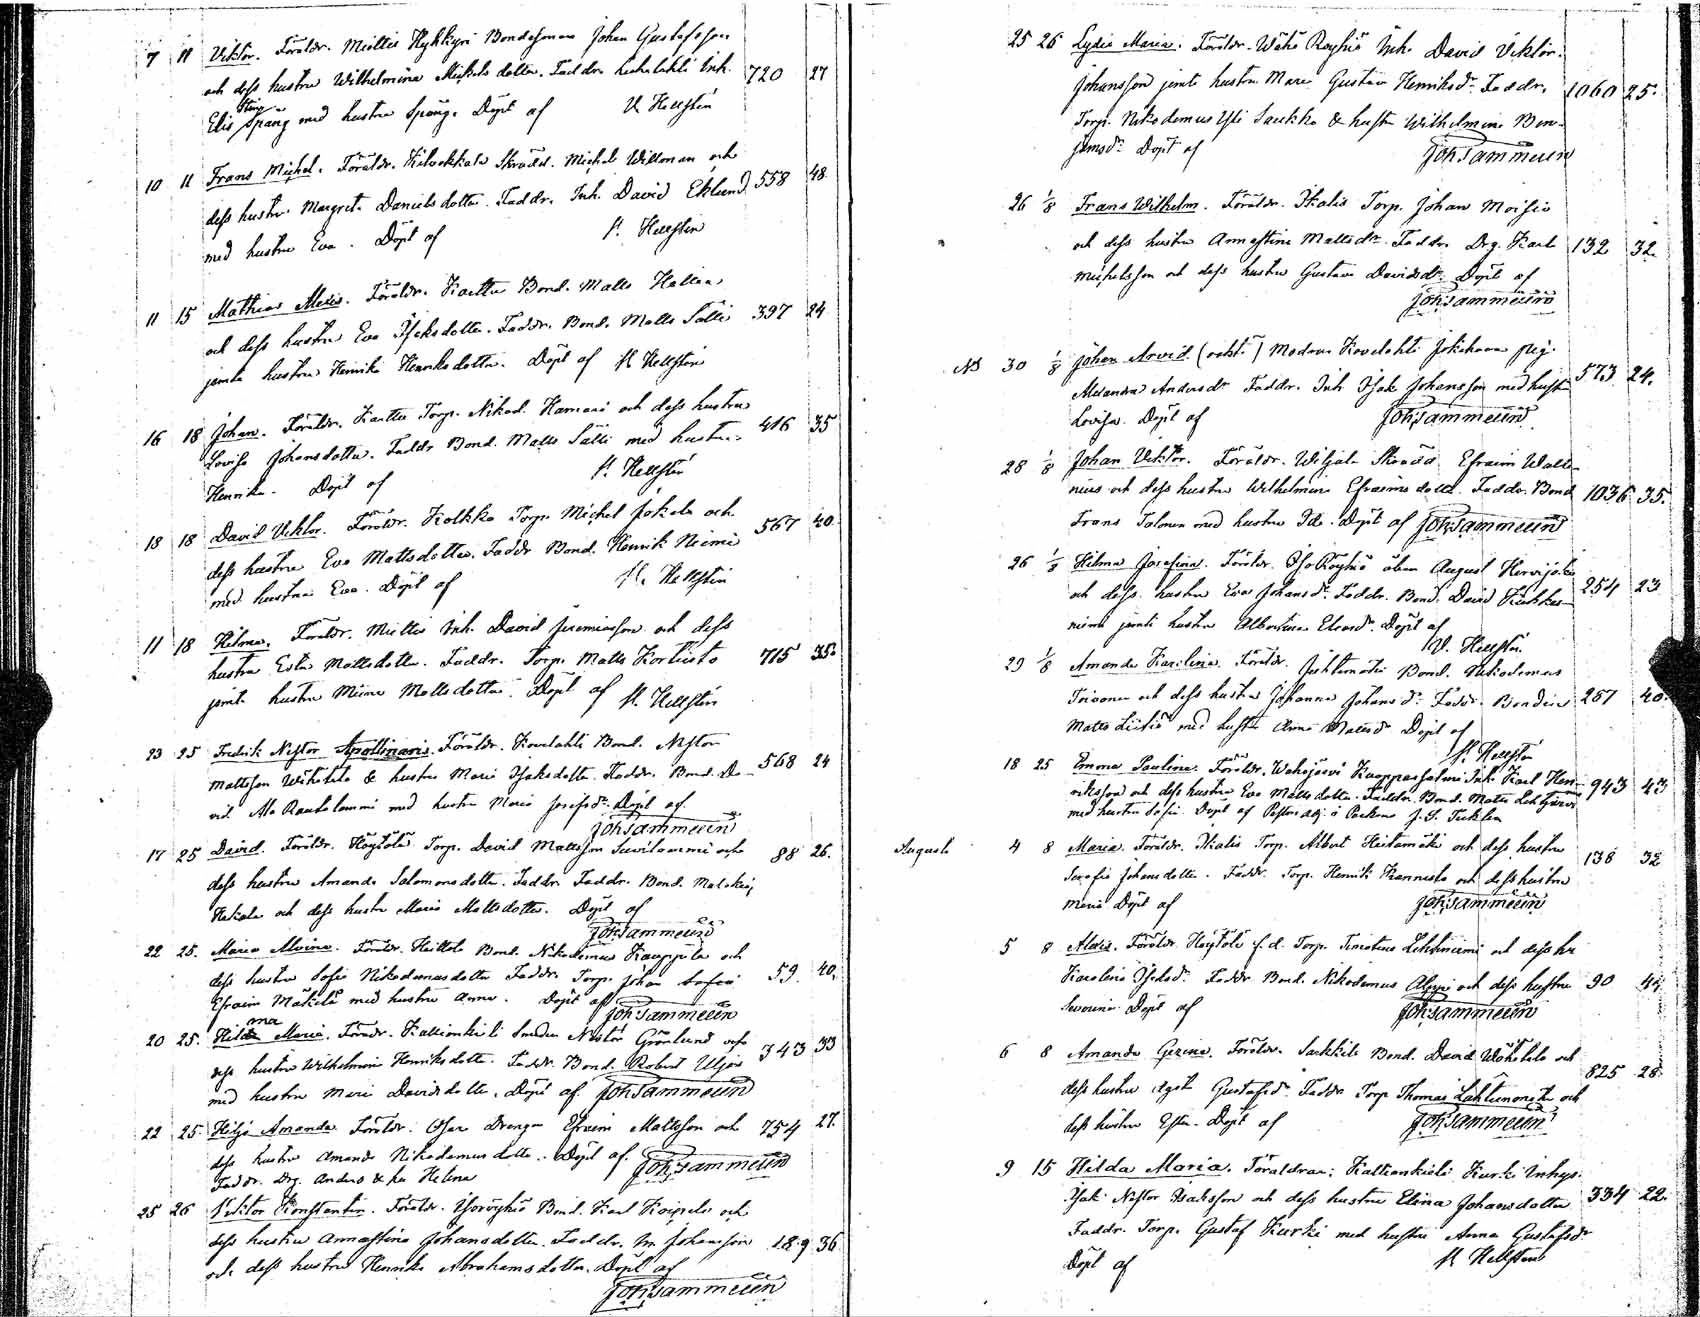 7 11 Viktor. Föräldr. Miettis Hykkyri Bondesonen Johan Gustafsson
och dess hustru Wilhelmina Mickelsdotter. Faddr. Inh. 720 27
Elis Spång med hustru Spång. Döpt af Hellstén
10 11 Frans Michel. Föräldr. Kilvakkala Skrädd. Michel Willman och
dess hustru Margreta Danielsdotter. Faddr. Inh. David Eklund 558 48
med hustru Eva. Döpt af Hellstén
11 15 Mathias Alexis. Föräldr. Karttu Bond. Matts Hallian
och dess hustru Eva Isaksdotter. Faddr. Bond. Matts Sälli 397 24
jemte hustru Henrika Henriksdotter. Döpt af Hellstén
16 18 Johan. Föräldr. Karttu Torp. Nikod. Hamari och dess hustru
Lovisa Johansdotter. Faddr Bond. Matts Sälli med hustru 416 35
Henrika. Döpt af Hellstén
18 18 David Viktor. Föräldr. Kolkko Torp. Michel Jokela och
dess hustru Eva Mattsdotter. Faddr Bond. Henrik Niemi 567 40
med hustru Eva. Döpt af Hellstén
11 18 Hilma. Föräldr. Miettis Inh. David Jeremiasson och dess
hustru Ester Mattsdotter. Faddr. Torp. Matts Kortisto 715 35
jemte hustru Miina Mattsdotter. Döpt af Hellstén
23 25 Fredrik Nestor Apollinaris. Föräldr. Kovelahti Bond. Nestor
Mattsson Wähätalo & hustru Maria Isaksdotter. Faddr. Bond. Da- 568 24
vid Ala Rautalammi med hustru Maria Josefsdr. Döpt af
Joh Sammeun
17 25 David. Föräldr. Höytölä Torp. David Mattsson Savilammi och
dess hustru Amanda Salomonsdotter. Faddr. Faddr. Bond. 88 26.
Hakala och dess hustru Maria Mattsdotter. Döpt af
Joh Sammeun
22 25. Maria Alvina. Föräldr. Heittola Bond. Nikodemus Kauppila och
dess hustru Sofia Nikodemusdotter Faddr. Torp. Johan 59. 40.
Efraim Mäkelä med hustru Anna. Döpt af Joh Sammeun
ma
20 25. Hilda Maria. Föräldr. Kallionkieli Smeden Nestor Grönlund och
dess hustru Wilhelmina Henriksdotter. Faddr. Bond. Robert Uljas 343 33
med hustru Maria Davidsdotter. Döpt af Joh Sammeun
22 25. Hilja Amanda Föräldr. Osar Drengen Efraim Mattsson och 754 27.
dess hustru Amanda Nikodemusdotter. Döpt af Joh Sammeun
Faddr. Drg. Anders & hu Helena
25 26 Viktor Konstantin. Föräldr. Isoröyhiö Bond. Karl Koipalo och
dess hustru Annastina Johansdotter. Faddr. Johansson 189 36
och dess hustru Henrika Abrahamsdotter. Döpt af
Joh Sammeun
25 26 Lydia Maria. Föräldr. Wähä Röyhiö Inh. David Viktor
Johansson jemte hustru Maria Gustava Henriksdr. Faddr. 1060 25.
Torp. Nikodemus Yli Saukko & hustru Wilhelmina Ben-
jamsdr. Döpt af Joh Sammeun
26 1/8 Frans Wilhelm. Föräldr. Ikalis Torp. Johan Moisio
och dess hustru Annastina Mattsdr. Faddr. Drg. Karl 132 32.
Michelsson och dess hustru Gustava Davidsdr. Döpt af
Joh Sammeun
NB 30 1/8 Johan Arvid. (oäkta) Modren Kovelahti Jokihaara pig.
Alexandra Andersdr Faddr. Inh. Isak Johansson med hustru 573 24.
Lovisa. Döpt af Joh Sammeun
28 1/8 Johan Viktor. Föräldr. Wiljala Skrädd. Efraim Walle-
nius och dess hustru Wilhelmina Efraimsdotter. Faddr. Bond 1036 35.
Frans Talonen med hustru Ida. Döpt af Joh Sammeun
26 1/8 Hilma Josefina. Föräldr. IsoRöyhiö August Hervijoki
och dess hustru Eva Johansdr. Faddr. Bond. David Kiukkas- 254 23
niemi jemte hustru Albertina Edvardr. Döpt af
Hellstén.
29 1/8 Amanda Karolina. Föräldr. Juhtimäki Bond. Nikodemus
Toivonen och dess hustru Johanna Johansdr. Faddr. Bonden 287 40.
Matts Liekiö med hustru Anna Mattsdr Döpt af
Hellstén
18 25 Emma Paulina. Föräldr. Wahojärvi Kauppassalmi Inh. Karl Hen-
riksson och dess hustru Eva Mattsdotter. Faddr. Bond. Matts Lehtijärvi 943 43
med hustru Sofia. Döpt af Pastors adj. i Parkano J. S. Tucklin
Augusti 4 8 Maria. Föräldr. Ikalis Torp. Albert Heitamäki och dess hustru
Serafia Johansdotter. Faddr. Torp. Henrik Kannisto och dess hustru 138 32
Maria Döpt af Joh Sammeun
5 8 Alexis. Föräldr. Höytölä f.d. Torp. Timoteus Lehtiniemi och dess hu
Karolina Isaksdr. Faddr. Bond. Nikodemus och dess hustru 90 44
Severina. Döpt af Joh Sammeun
6 8 Amanda Gezina. Föräldr. Sarkkila Bond. David Wähätalo och
dess hustru Agata Gustafsdr. Faddr. Torp. Thomas Lähteenoja och 825 28.
dess hustru Ester. Döpt af Joh Sammeun
9 15 Hilda Maria. Föräldrar: Kallionkieli Kurki Inhys.
Isak Nestor Isaksson och dess hustru Elina Johansdotter 334 22.
Faddr. Torp. Gustaf Kurki med hustru Anna Gustafsdr
Döpt af Hellstén